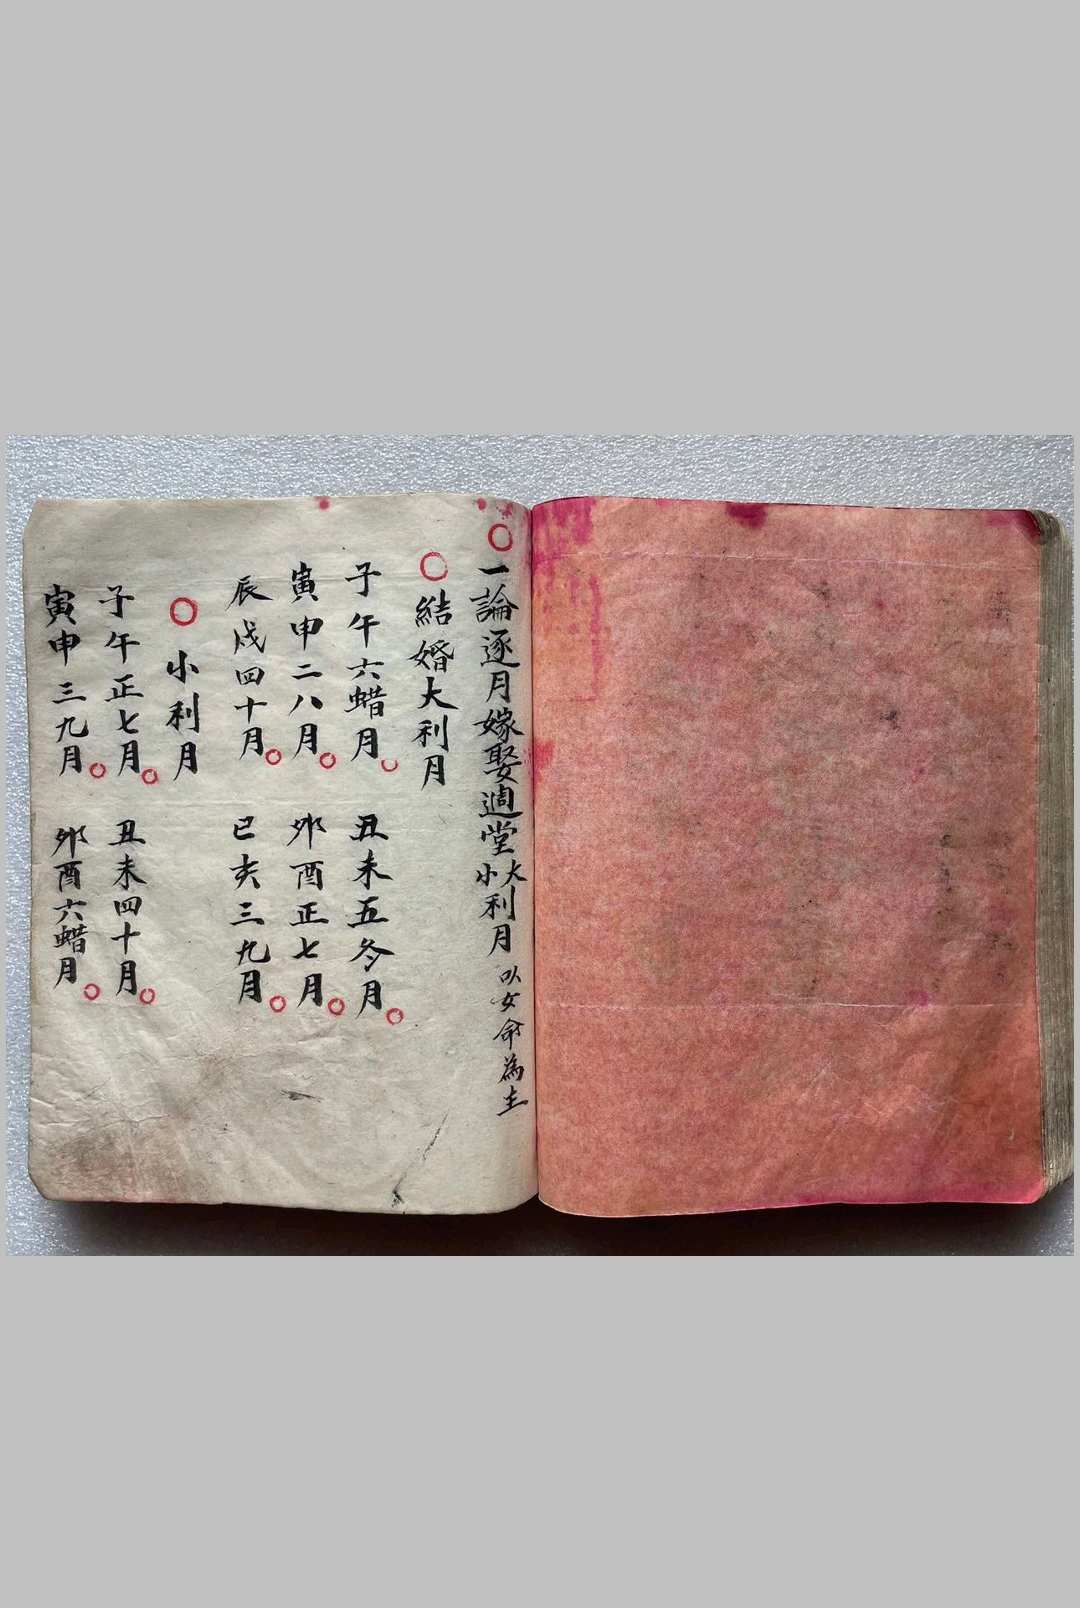 一論逐月嫁娶週堂大小利月 以女命為主
結婚大利月
子午六蜡月 丑未五冬月
寅申二八月 卯酉正七月
辰戌四十月 巳亥三九月
小利月
子午正七月 丑未四十月
寅申三九月 卯酉六蜡月